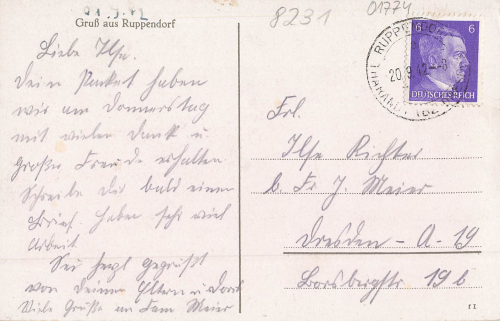 21.9.42
Gruß aus Ruppendorf
8231
01774
Liebe Ilse.
Dein Packet haben
wir am Donnerstag
mit vielen Dank u
Großer Freude erhalten.
Schreibe Dir bald einen
Brief. Haben sehr viel
Arbeit
Sei herzl gegrüßt
von Deinen Eltern u
Viele Grüße an Fam Meier
RUPPENDORF
20.9.42
6 6
DEUTSCHES REICH
Frl.
Ilse Richter
b. Fr J. Meier
Dresden - A - 19
Borsbergstr 19 b